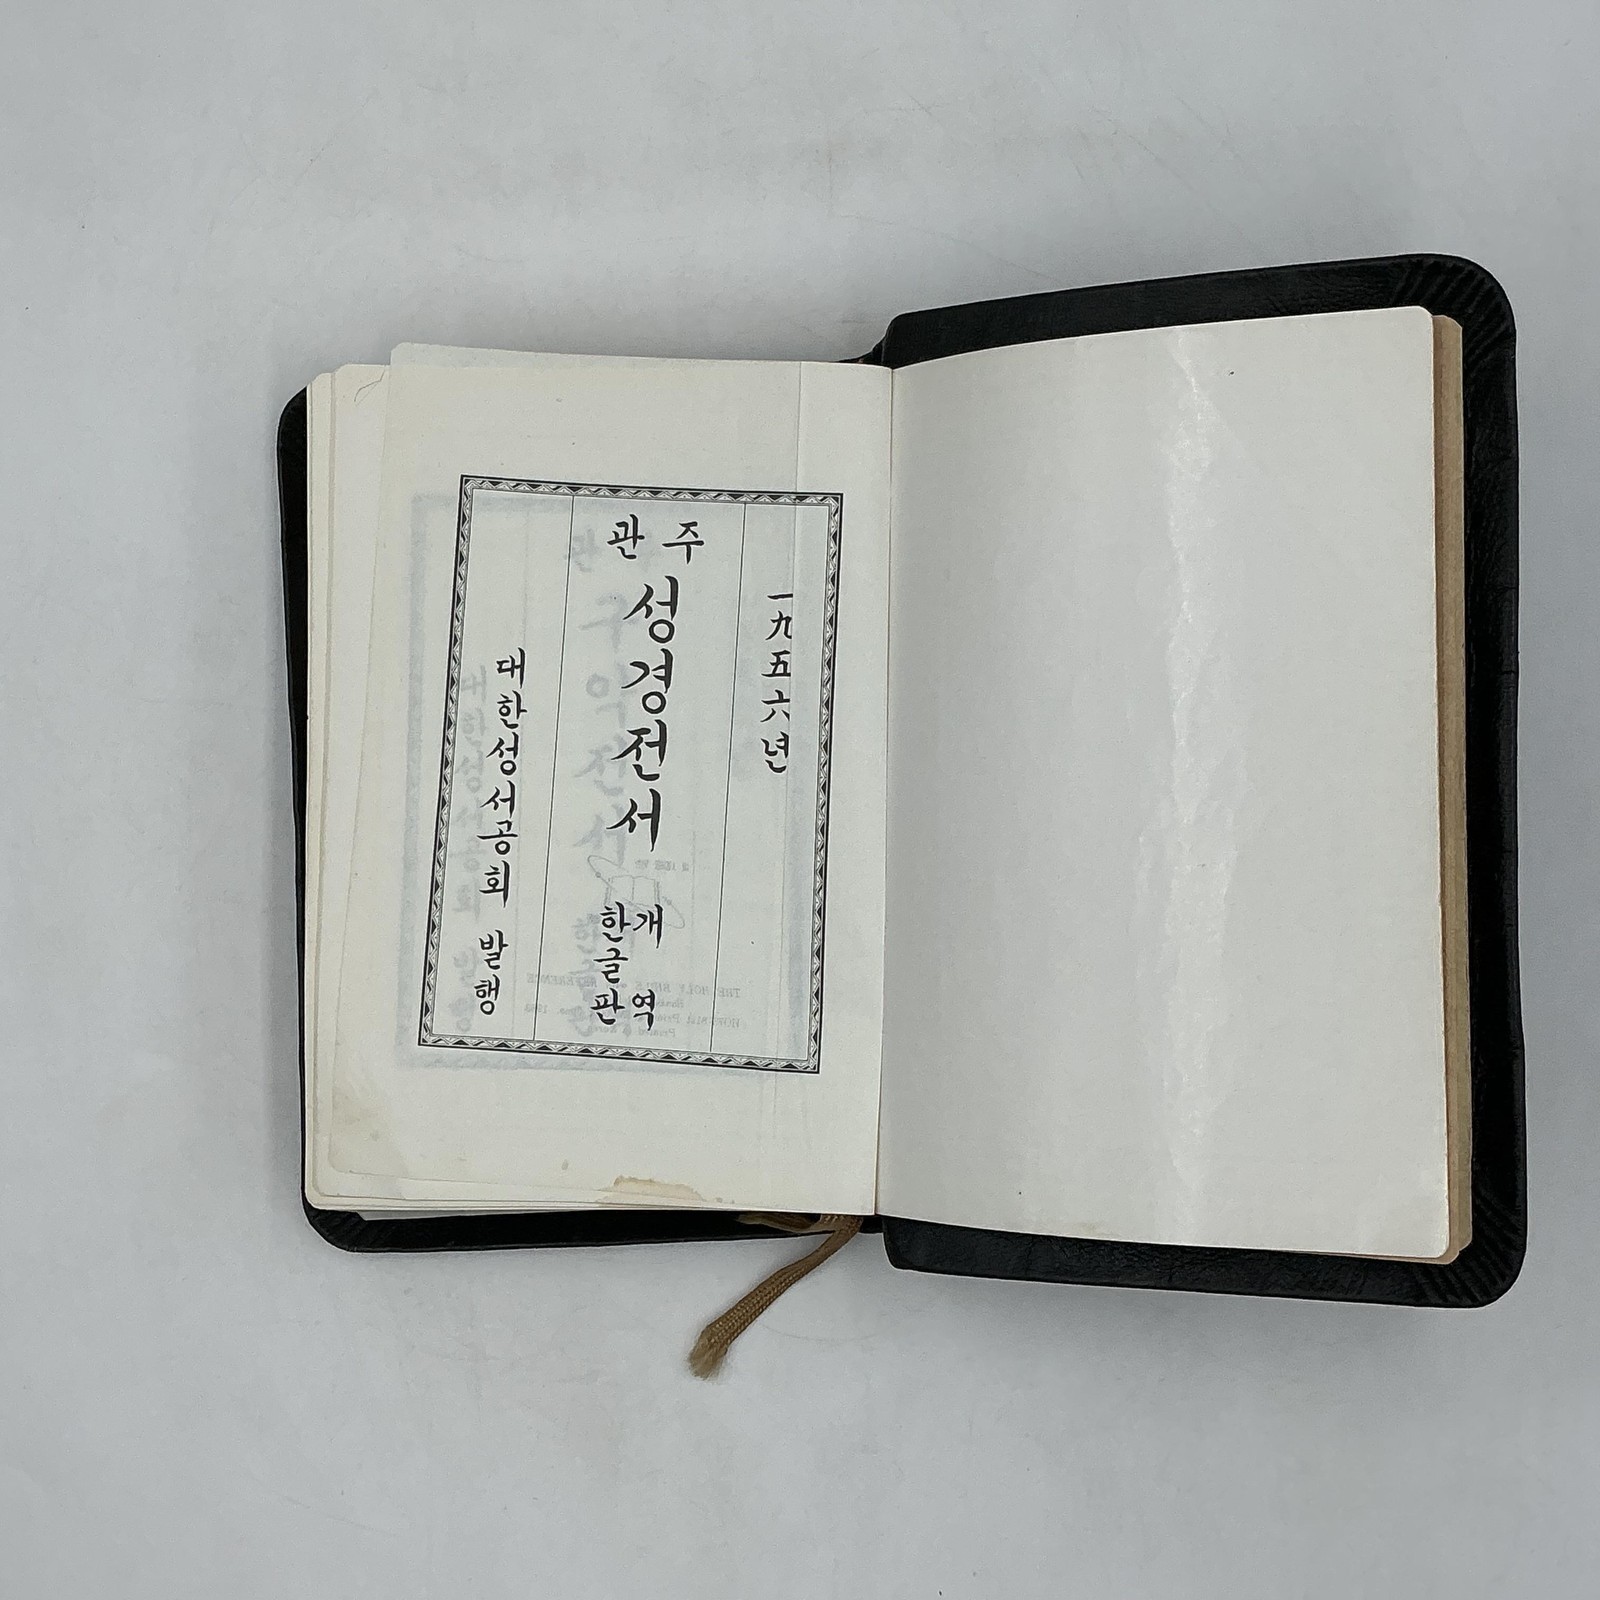 一九五六년
관주
성경전서
개역
한글판
대한성서공회 발행
THE HOLY BIBLE
REFERENCE